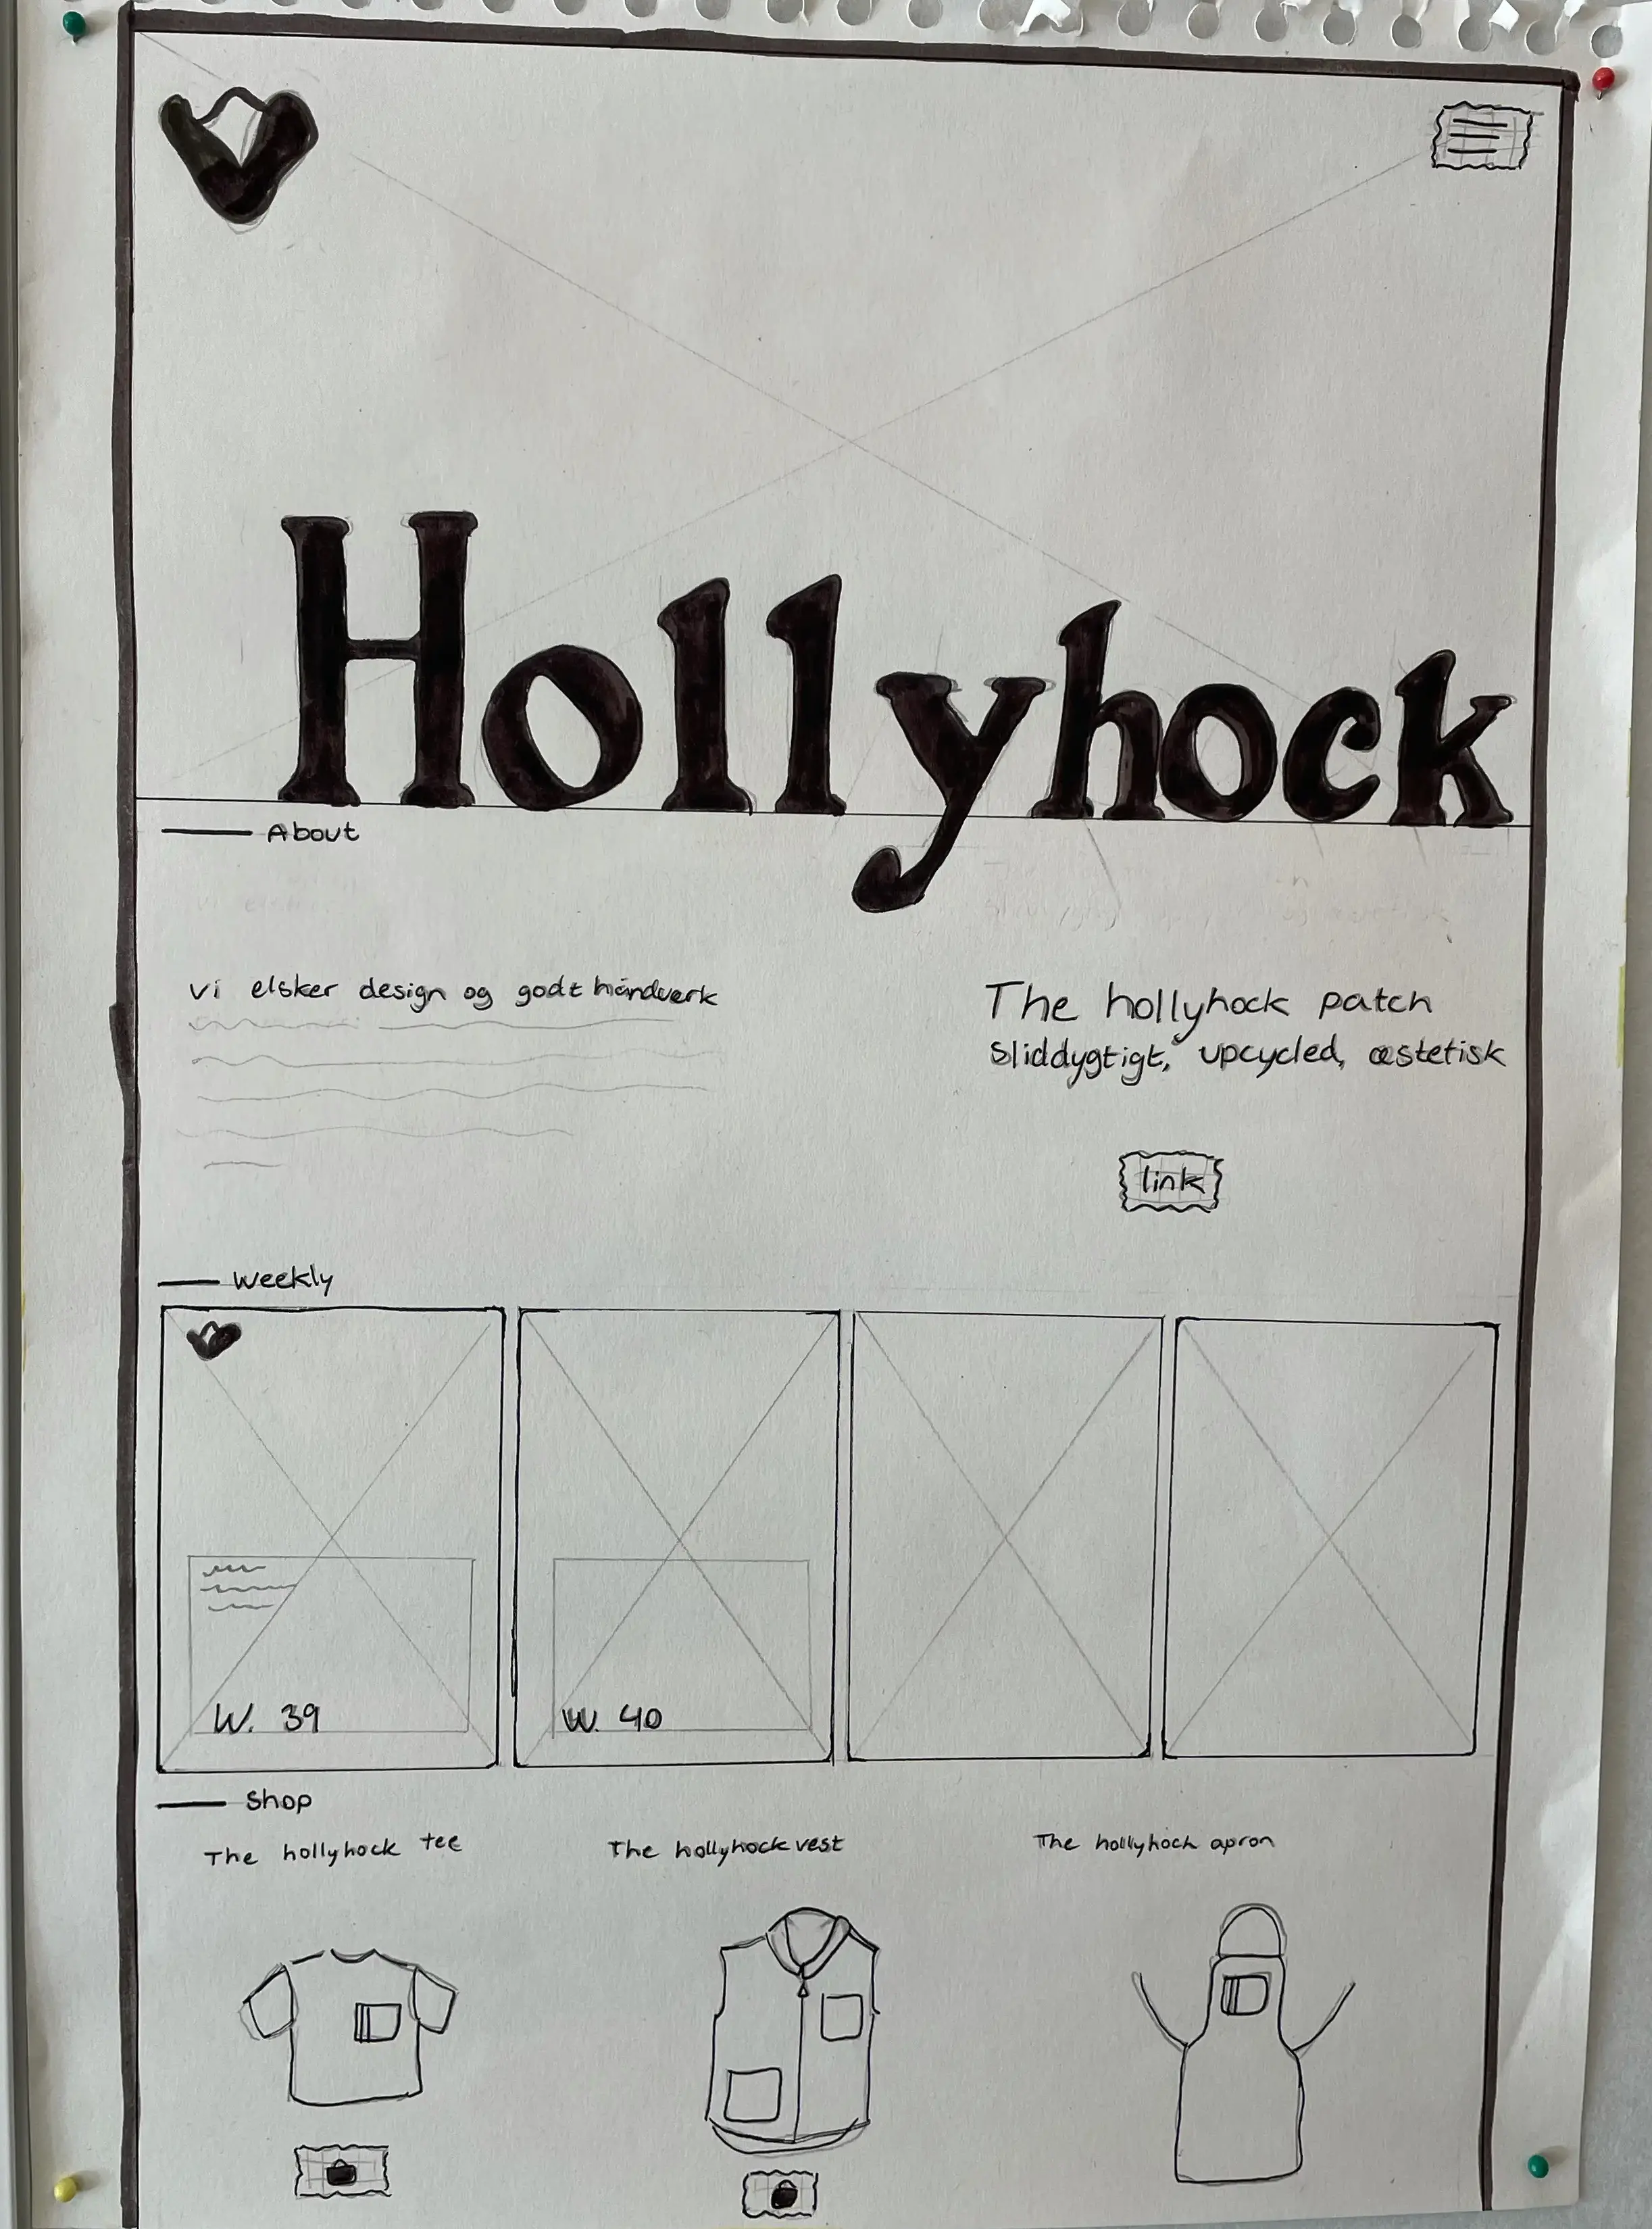 Hollyhock
About
Vi elsker design og godt håndværk
The hollyhock patch
Sliddygtigt, upcycled, æstetisk
link
Weekly
W. 39
W. 40
Shop
The hollyhock tee
The hollyhock vest
The hollyhock apron